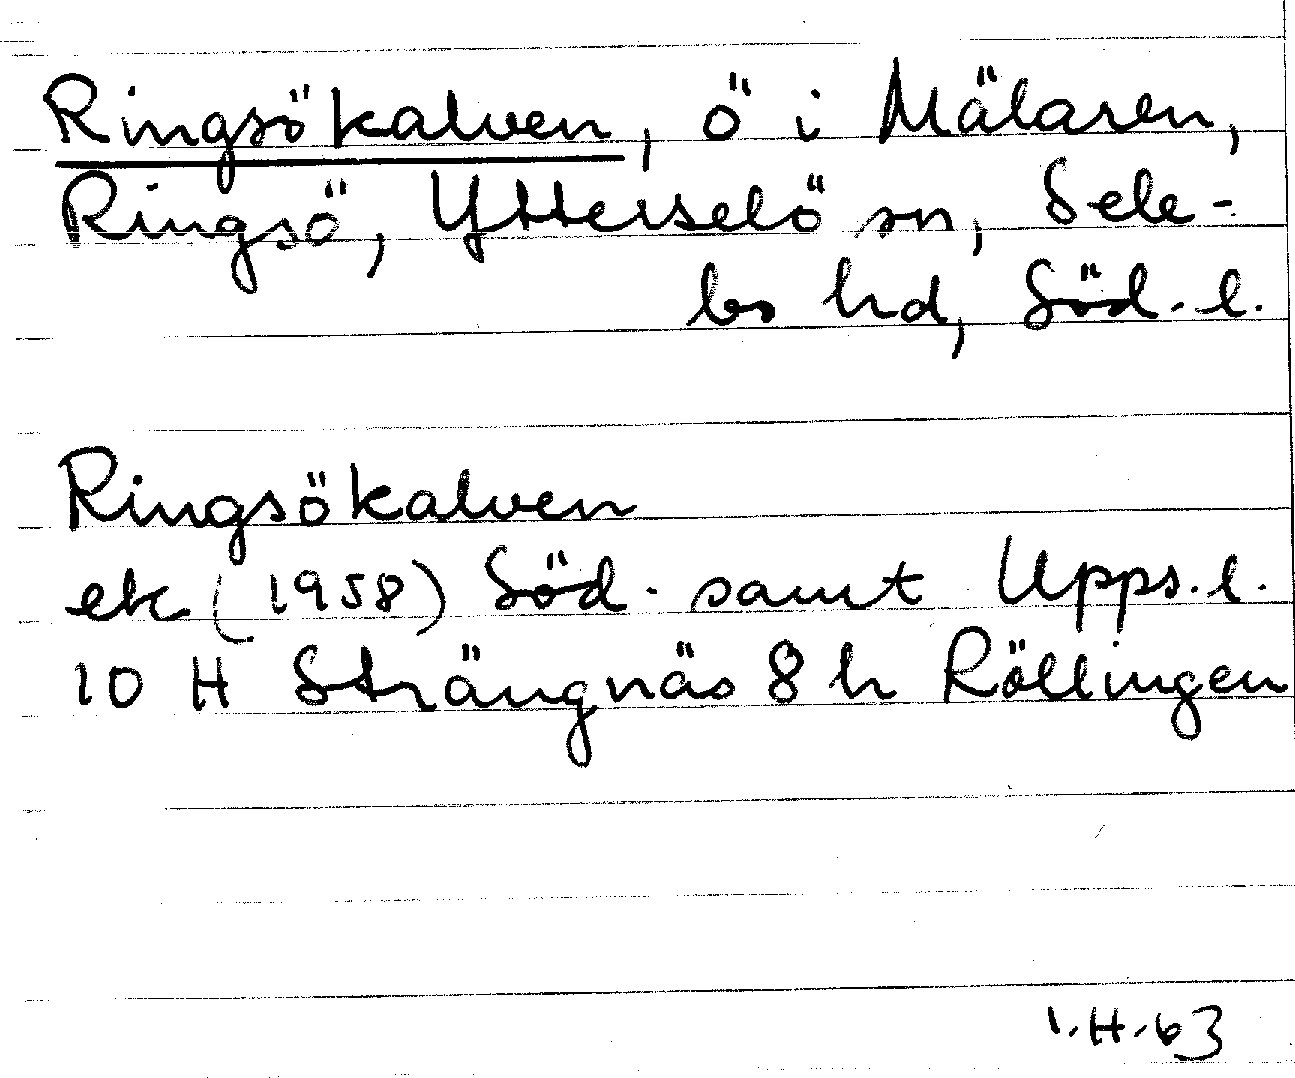 Ringsökalven, ö i Mälaren,
Ringsö, Ytterselö sn, Sele-
bo hd, Söd. l.
Ringsökalven
ek (1958) Söd. samt Upps. l.
10 H Strängnäs 8 h Röllingen
1.H.63